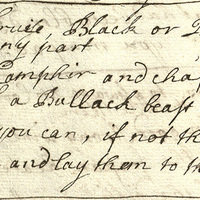 ruise, Black or
ny part
Camphir and cha
a Bullack beast
you can, if not th
and lay them to th